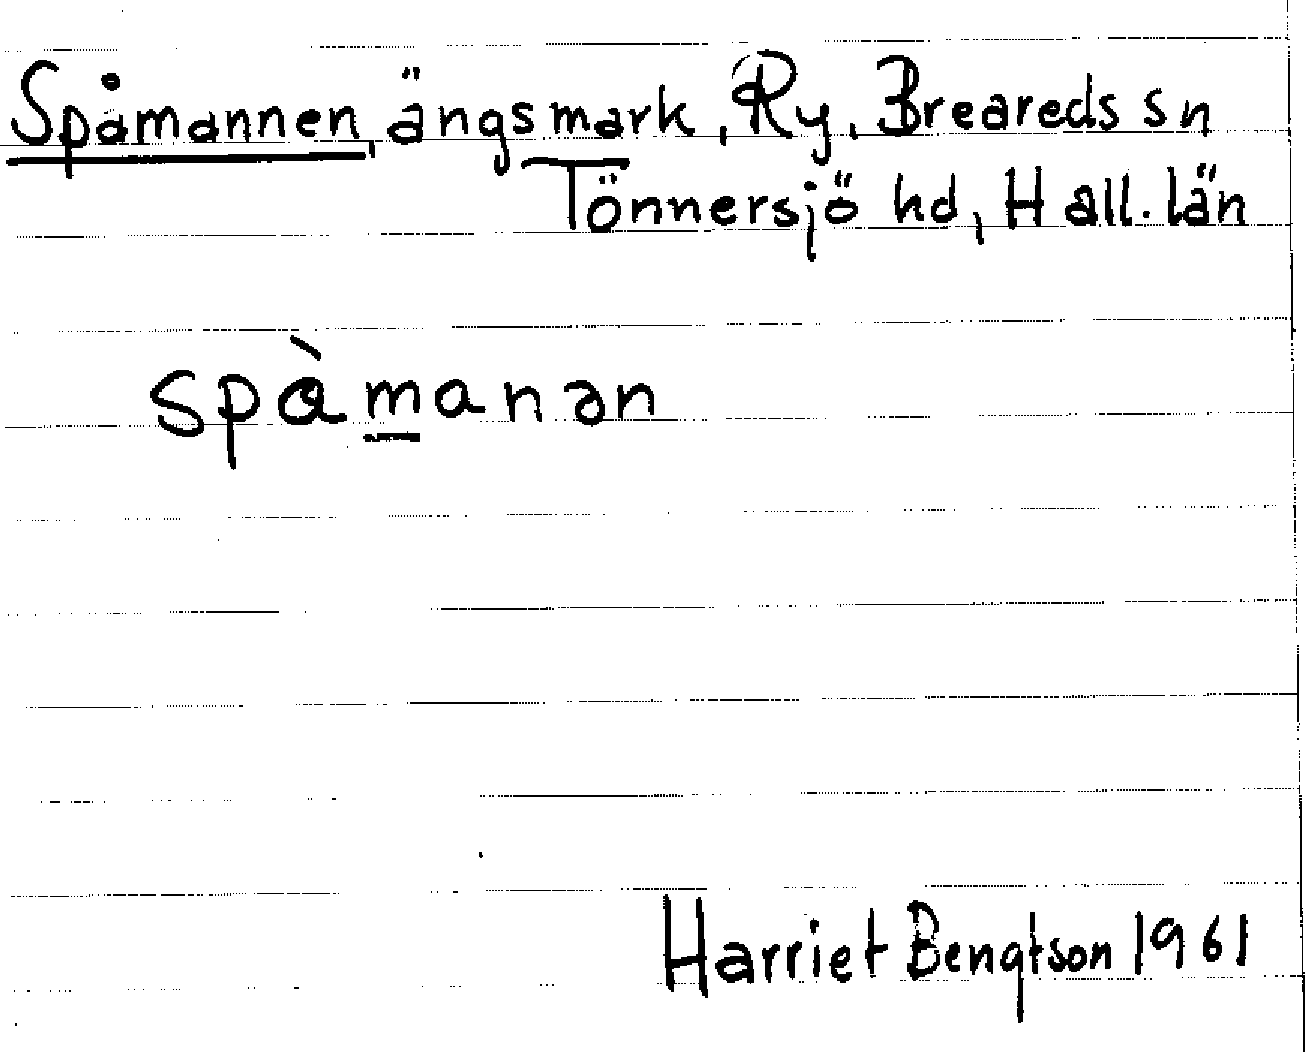 Spåmannen, ängsmark, Ry, Breareds sn
Tönnersjö hd, Hall. län
spàmanən
Harriet Bengtson 1961